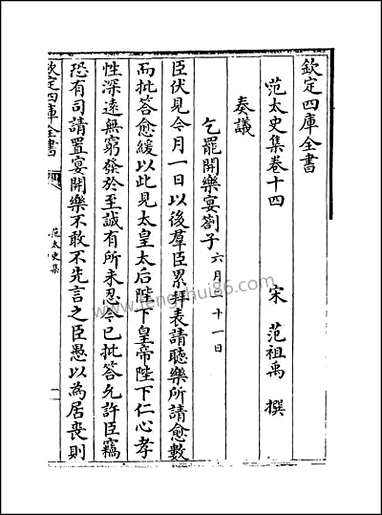 欽定四庫全書
范太史集卷十四
宋 范祖禹 撰
奏議
乞罷開樂宴劄子六月二十一日
臣伏見今月一日以後羣臣累拜表請聽樂所請愈數
而批答愈緩以此見太皇太后陛下皇帝陛下仁心孝
性深遠無窮發於至誠有所未忍今已批答允許臣竊
恐有司請置宴開樂不敢不先言之臣愚以為居喪則
欽定四庫全書
范太史集
一